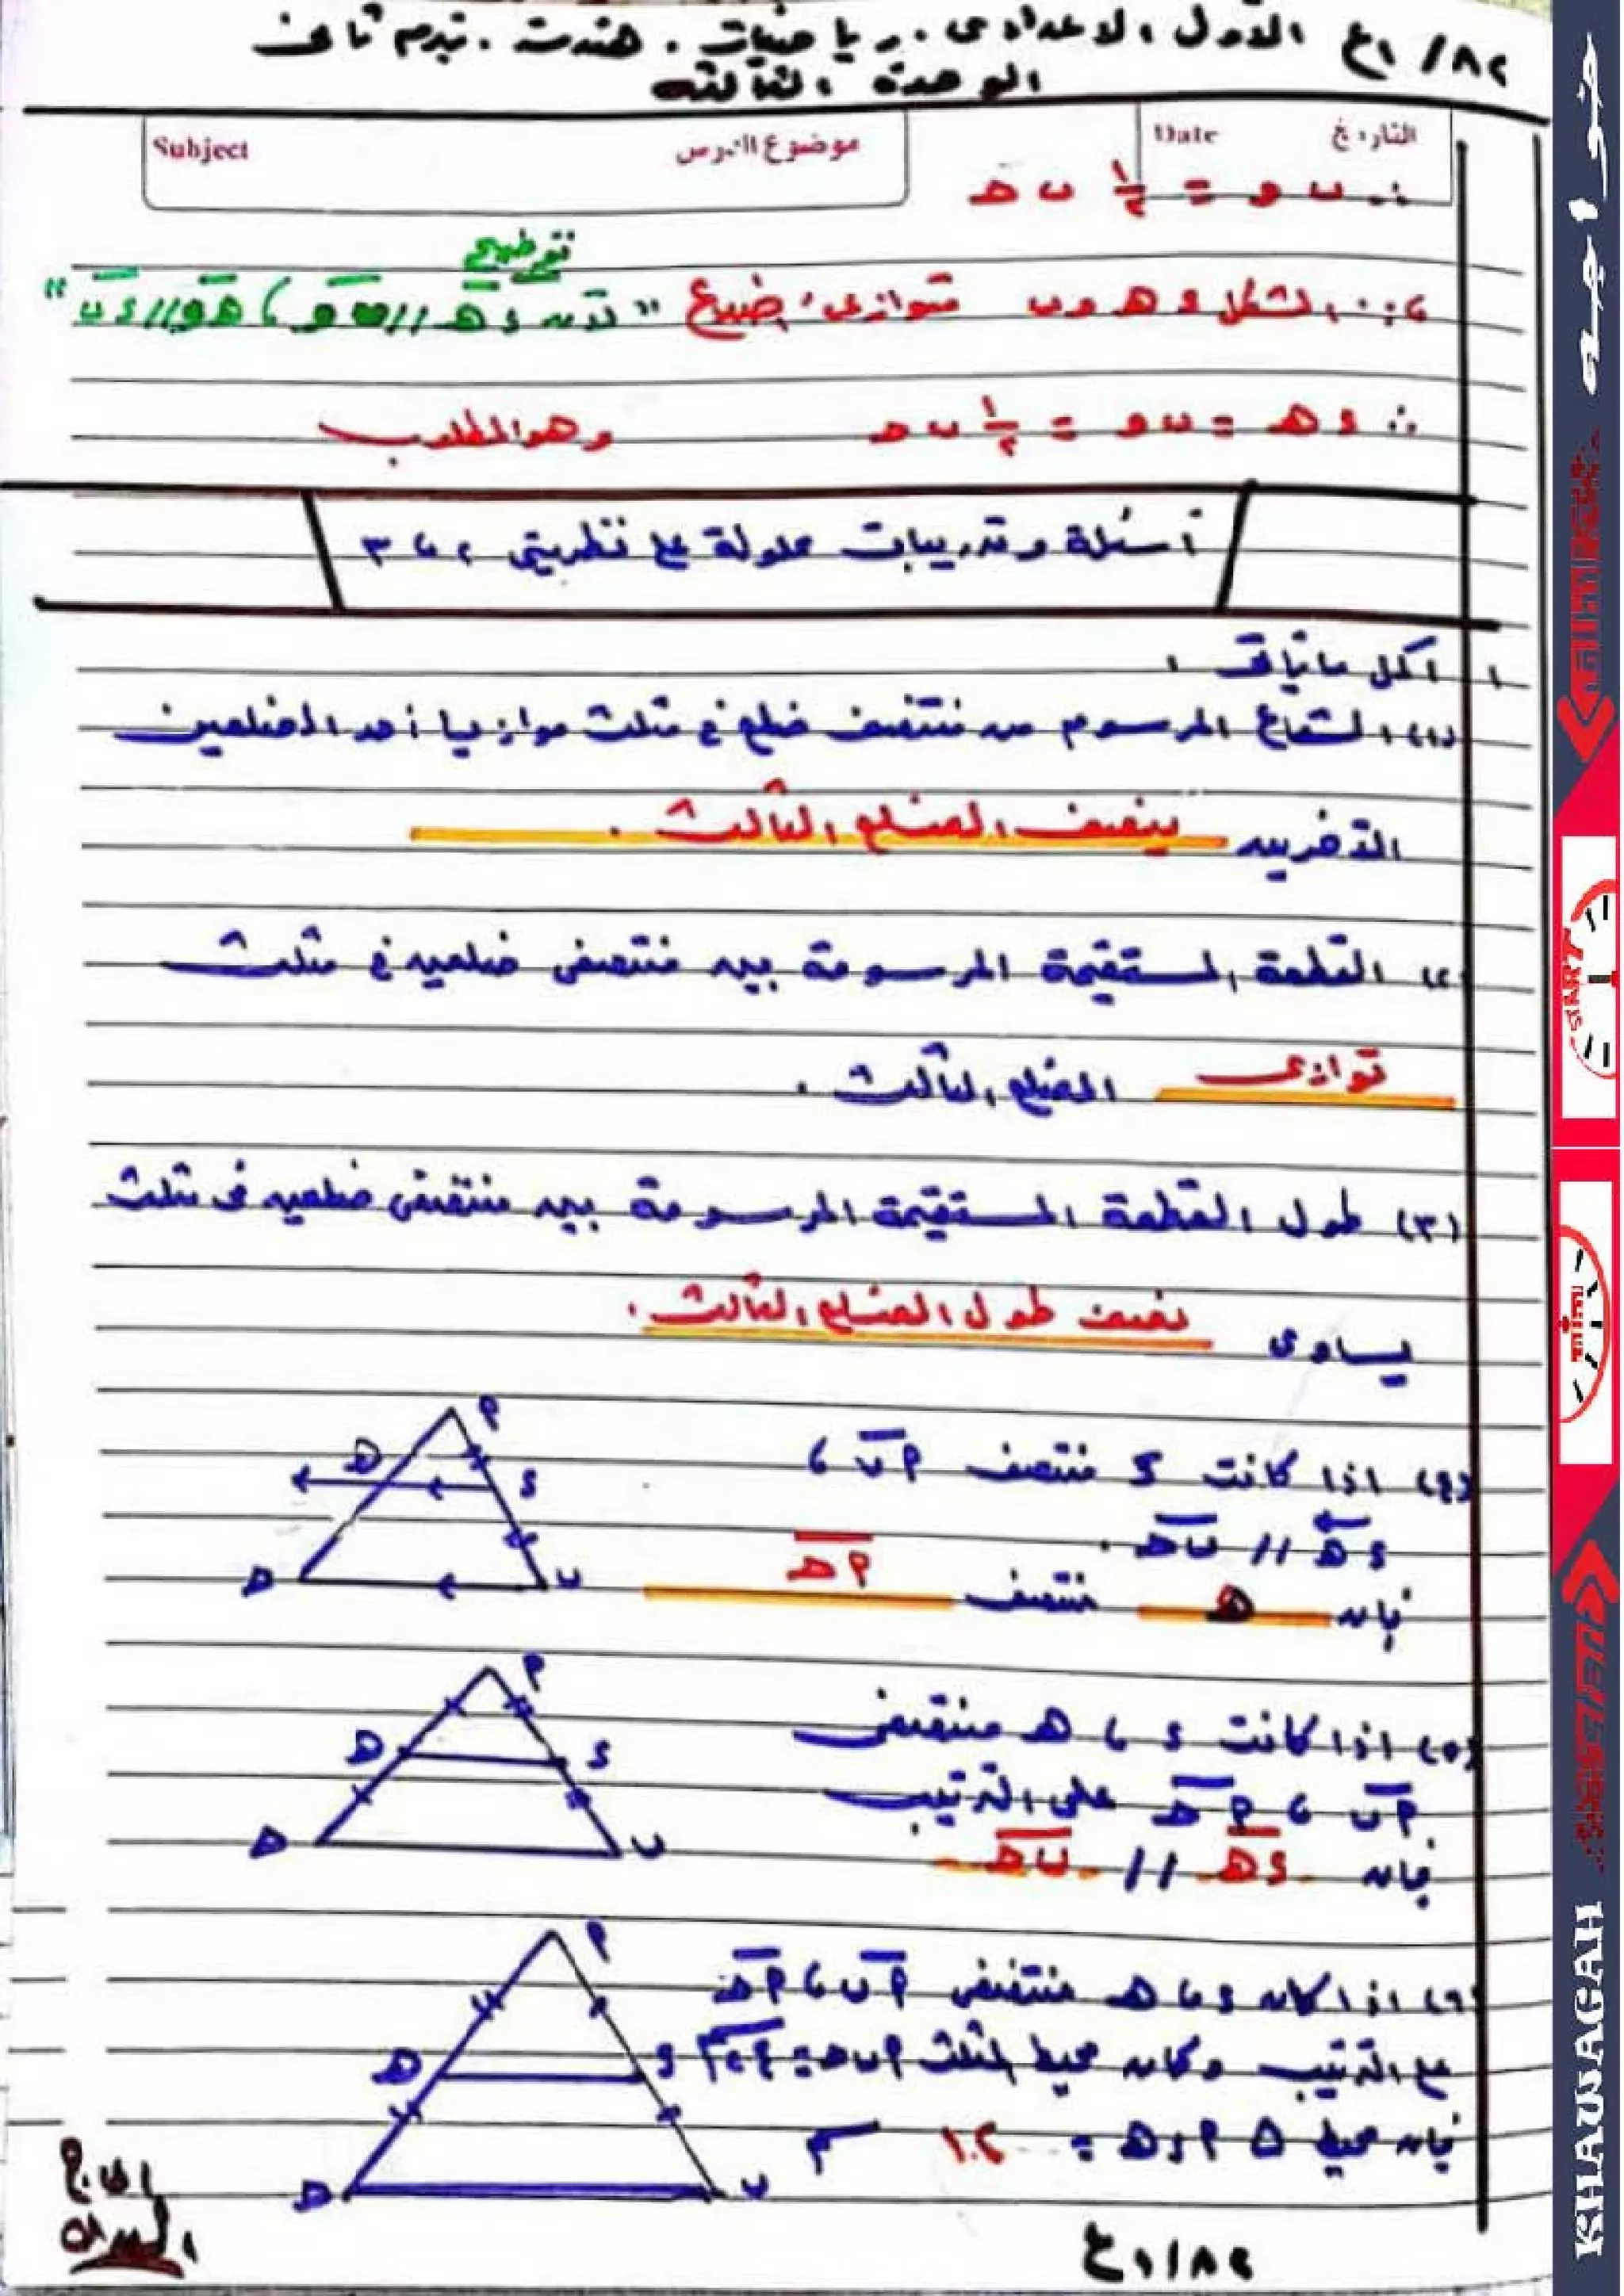 ٨٢/ ١ع الأول الاعدادى . رياضيات . هندسة . تيرم ثانى
الوحدة الثالثة
Subject موضوع الدرس
Date التاريخ
∴ ب و = ١/٢ ب ح
توضيح
، ∵ الشكل ء ه و ب متوازى أضلاع "لأن ء ه // ب و ، ه و // ء ب"
∴ ء ه = ب و = ١/٢ ب ح وهو المطلوب
أسئلة وتدريبات محلولة على نظريتى ٢ ، ٣
١ اكمل ما يأتى :
(١) الشعاع المرسوم من منتصف ضلع فى مثلث موازيا أحد الضلعين
الآخرين ينصف الضلع الثالث .
(٢) القطعة المستقيمة المرسومة بين منتصفى ضلعين فى مثلث
توازى الضلع الثالث .
(٣) طول القطعة المستقيمة المرسومة بين منتصفى ضلعين فى مثلث
يساوى نصف طول الضلع الثالث .
(٤) اذا كانت ء منتصف أ ب ،
ء ه // ب ح .
فإن ه منتصف أ ح
أ
ه
ء
ح
ب
(٥) اذا كانت ء ، ه منتصفى
أ ب ، أ ح على الترتيب
فإن ء ه // ب ح
أ
ه
ء
ح
ب
(٦) اذا كان ء ، ه منتصفى أ ب ، أ ح
على الترتيب وكان محيط المثلث أ ب ح =
فإن محيط Δ أ ء ه = ١٠٢ سم
أ
ه
ء
ح
ب
٨٢/١ع
خواجه
START
KHAWAGAH